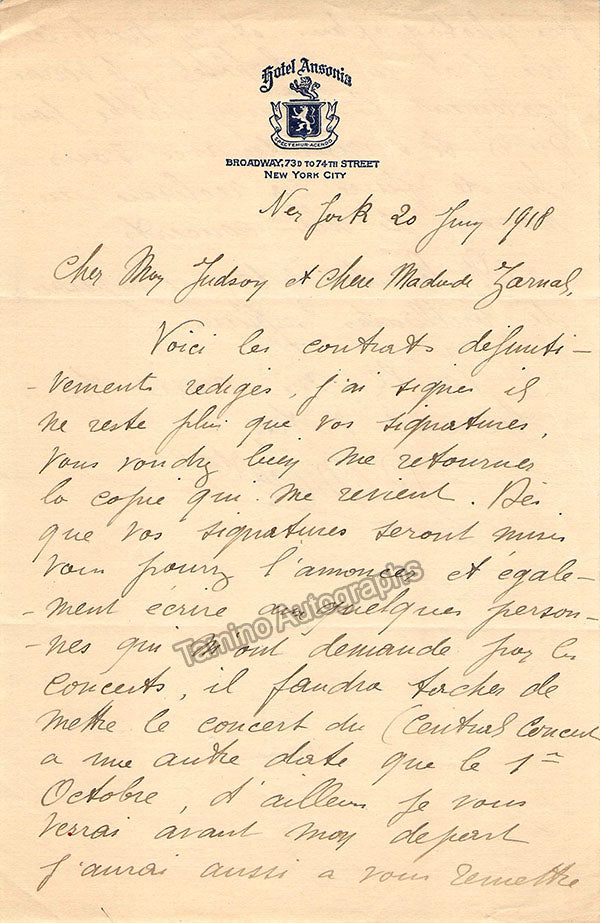 Hotel Ansonia
SPECTEMUR·AGENDO
BROADWAY, 73D TO 74TH STREET
NEW YORK CITY
New York 20 1918
Cher Mon Judson et Chere Madame
Voici les contrats definiti-
-vements rediges, j'ai signes il
ne reste plus que vos signatures,
vous voudrez bien me retourner
la copie qui me revient. Dès
que vos signatures seront mises
vous pourrez l'annoncer et égale-
-ment écrire aux quelques person-
-nes qui m'ont demande pour les
concerts, il faudra tacher de
mettre le concert du (Central Concert
a une autre date que le 1er
Octobre, d'ailleurs je vous
verrai avant mon depart
j'aurai aussi a vous remettre
Tamino Autographs